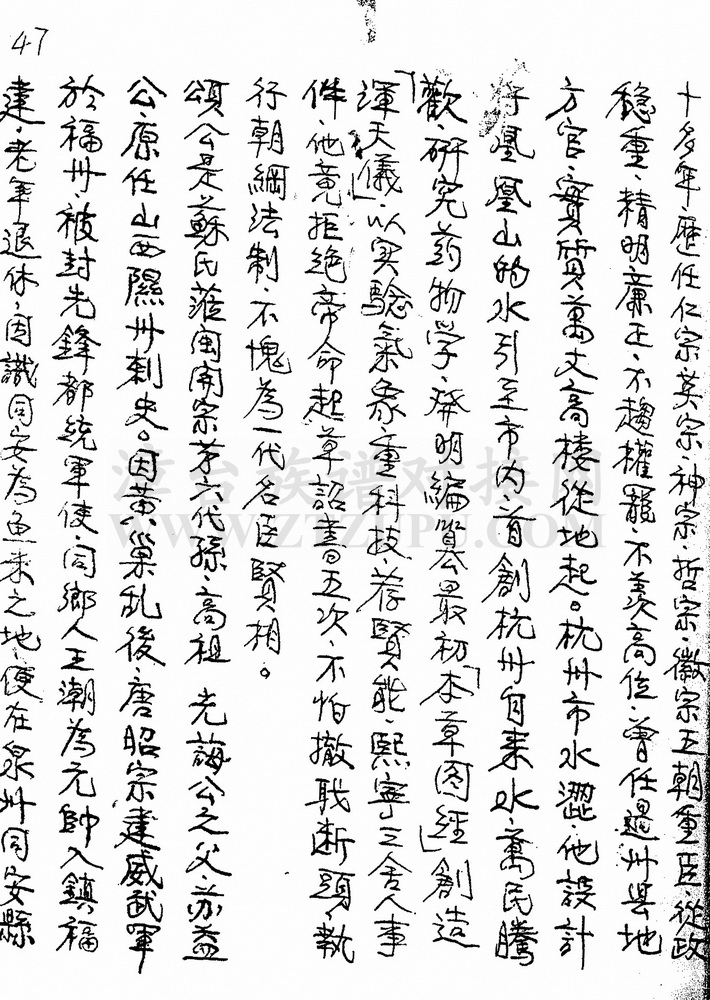 47
十多年，歷任仁宗、英宗、神宗、哲宗、徽宗五朝重臣，從政
穩重，精明廉正，不趨權寵，不羨高位，曾任過州县地
方官，實質萬丈高樓從地起。杭州市水澀，他設計
將鳳凰山的水引至市內，首創杭州自来水，萬民騰
歡，研究葯物学，發明編篡最初「本草图經」創造
「渾天儀」，以实驗氣象，重科技，荐賢能，熙寧三舍人事
件，他竟拒绝帝命起草詔書五次，不怕撤耿断頭，執
行朝綱法制，不愧為一代名臣賢相。
頌公是蘇氏蒞閩開宗茅六代孫，高祖 光誨公之父，苏益
公，原任山西隰州刺史。因黃巢乱後，唐昭宗建威武軍
於福州，被封先鋒都統軍使，同鄉人王潮為元帥入鎮福
建，老年退休，因識同安為鱼米之地，便在泉州同安縣
漳台族谱对接网
WWW.ZTZUPU.COM